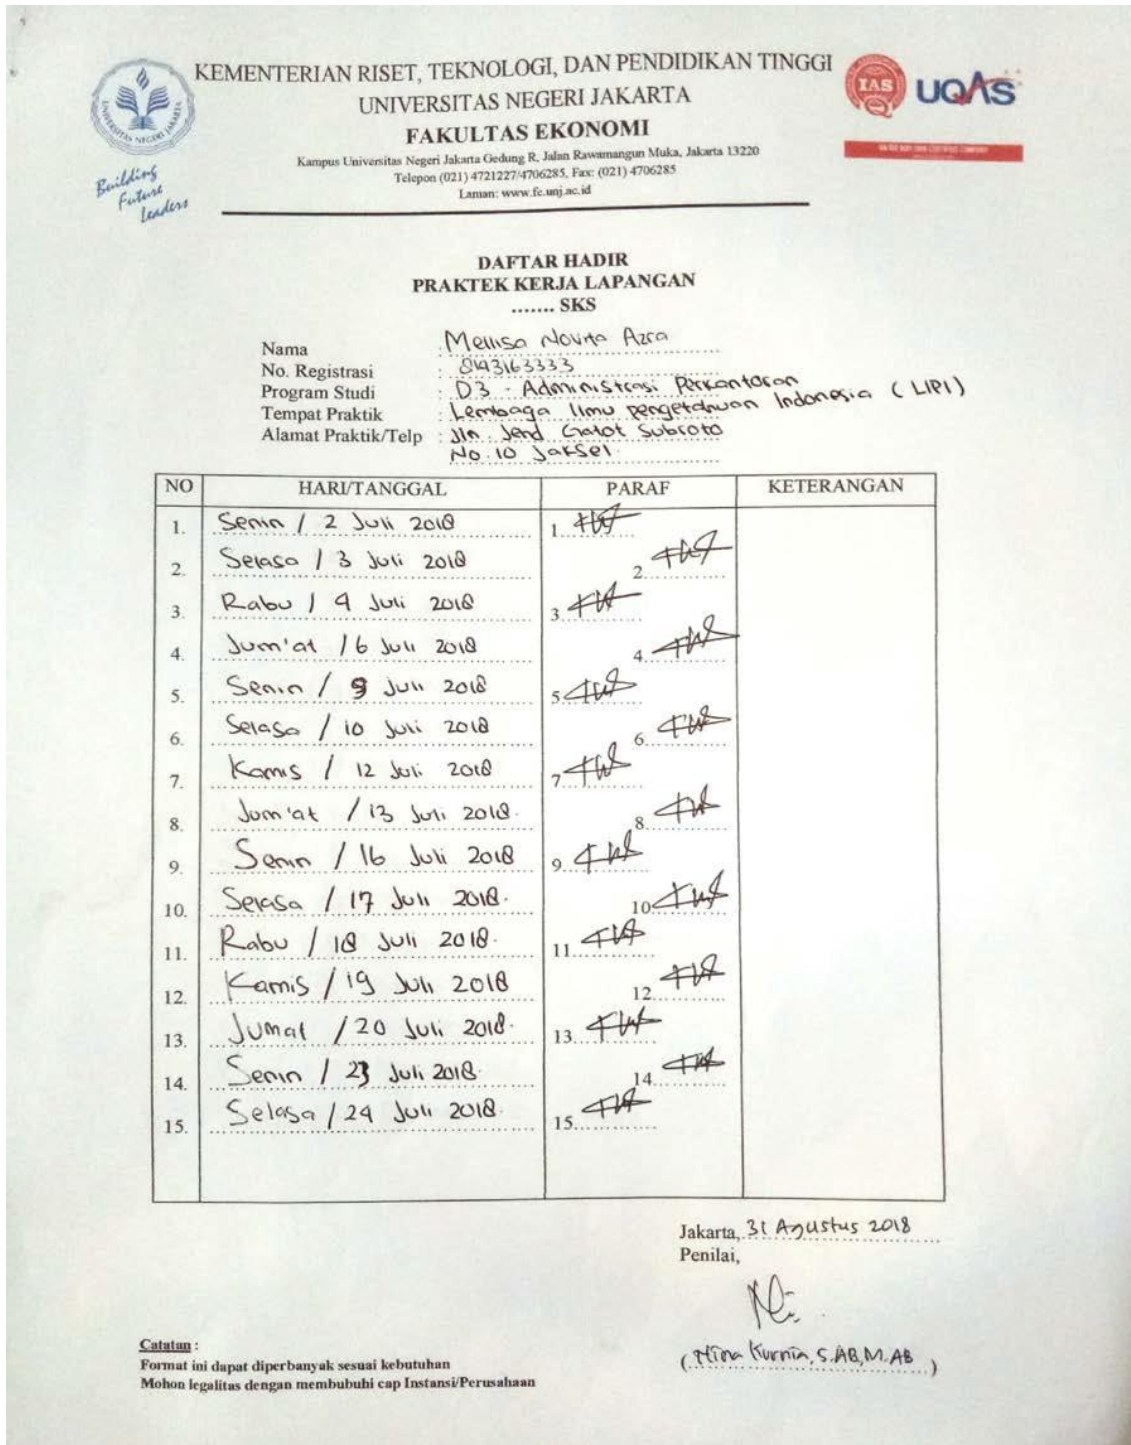 KEMENTERIAN RISET, TEKNOLOGI, DAN PENDIDIKAN TINGGI
UNIVERSITAS NEGERI JAKARTA
FAKULTAS EKONOMI
Kampus Universitas Negeri Jakarta Gedung R, Jalan Rawamangun Muka, Jakarta 13220
Telepon (021) 4721227/4706285, Fax: (021) 4706285
Laman: www.fe.unj.ac.id
UNIVERSITAS NEGERI JAKARTA
Building
Future
Leaders
IAS
UQAS
DAFTAR HADIR
PRAKTEK KERJA LAPANGAN
....... SKS
Nama : Mellisa Novita Azra
No. Registrasi : 8143163333
Program Studi : D3 - Administrasi Perkantoran
Tempat Praktik : Lembaga Ilmu pengetahuan Indonesia (LIPI)
Alamat Praktik/Telp : Jln. Jend Gatot Subroto
No. 10 Jaksel.
NO HARI/TANGGAL PARAF KETERANGAN
1. Senin / 2 Juli 2018 1.
2. Selasa / 3 Juli 2018 2.
3. Rabu / 4 Juli 2018 3.
4. Jum'at / 6 Juli 2018 4.
5. Senin / 9 Juli 2018 5.
6. Selasa / 10 Juli 2018 6.
7. Kamis / 12 Juli 2018 7.
8. Jum'at / 13 Juli 2018. 8.
9. Senin / 16 Juli 2018 9.
10. Selasa / 17 Juli 2018. 10.
11. Rabu / 18 Juli 2018. 11.
12. Kamis / 19 Juli 2018 12.
13. Jumat / 20 Juli 2018. 13.
14. Senin / 23 Juli 2018. 14.
15. Selasa / 24 Juli 2018. 15.
Jakarta, 31 Agustus 2018
Penilai,
( Kurnia, S.AB, M.AB )
Catatan :
Format ini dapat diperbanyak sesuai kebutuhan
Mohon legalitas dengan membubuhi cap Instansi/Perusahaan